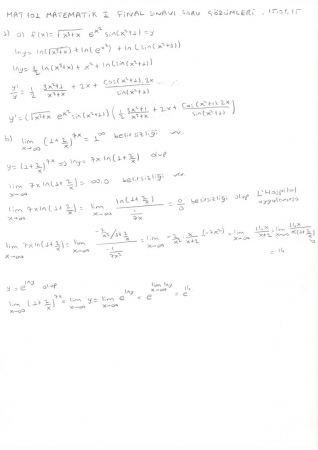 MAT101 MATEMATİK I FİNAL SINAVI SORU ÇÖZÜMLERİ. 15.01.15
1) a) f(x) = √(x³+x) e^(x²) sin(x²+1) = y
lny = ln(√(x³+x)) + ln(e^(x²)) + ln(sin(x²+1))
lny = 1/2 ln(x³+x) + x² + ln(sin(x²+1))
y'/y = 1/2 (3x²+1)/(x³+x) + 2x + (cos(x²+1).2x)/sin(x²+1)
y' = (√(x³+x) e^(x²) sin(x²+1)) (1/2 (3x²+1)/(x³+x) + 2x + (cos(x²+1).2x)/sin(x²+1))
b) lim x→∞ (1+2/x)^(7x) = 1^∞ belirsizliği var.
y = (1+2/x)^(7x) => lny = 7x ln(1+2/x) olup
lim x→∞ 7x ln(1+2/x) = ∞.0 belirsizliği var.
lim x→∞ 7x ln(1+2/x) = lim x→∞ ln(1+2/x) / (1/7x) = 0/0 belirsizliği olup L'Hospital
lim x→∞ 7x ln(1+2/x) = lim x→∞ (-2/x² / 1+2/x) / (-1/7x²) = lim x→∞ -2/x² x/(x+2) (-7x²) = lim x→∞ 14x/(x+2) = lim x→∞ 14x/x(1+2/x)
= 14
y = e^(lny) olup
lim x→∞ (1+2/x)^(7x) = lim x→∞ y = lim x→∞ e^(lny) = e^(lim x→∞ lny) = e^14